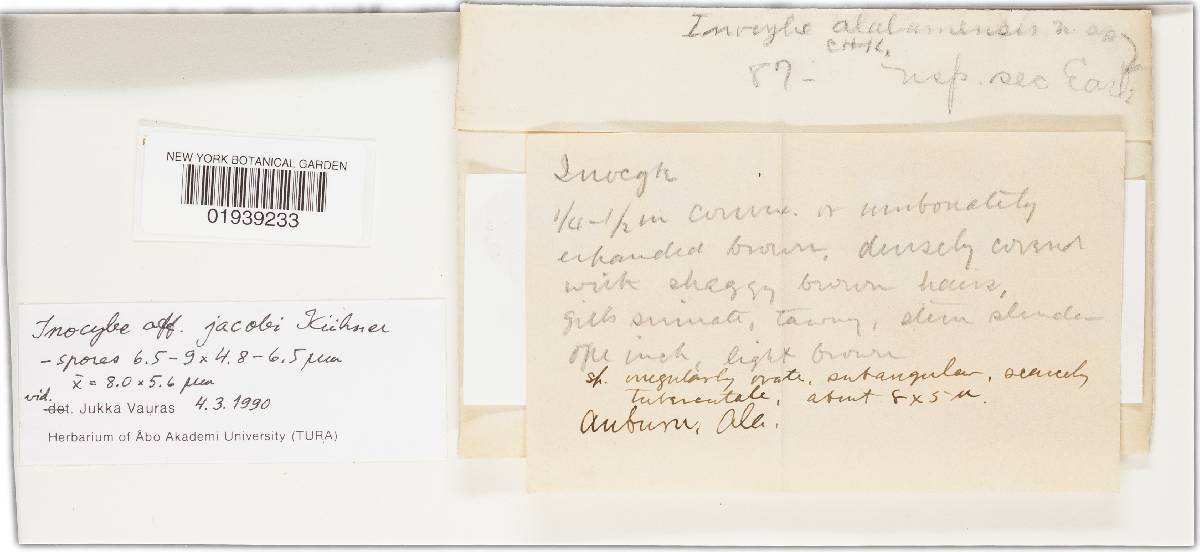 Inocybe alabamensis n sp
CHK.
87- nsp. sec Earle
NEW YORK BOTANICAL GARDEN
01939233
Inocybe aff. jacobi Kühner
- spores 6.5-9 x 4.8-6.5 µm
x̄ = 8.0 x 5.6 µm
vid.
det. Jukka Vauras 4.3.1990
Herbarium of Åbo Akademi University (TURA)
Inocyb
1/4-1/2 in convex. or umbonately
expanded brown, densely coverd
with shaggy brown hairs,
gills sinuate, tawny, stem slender
one inch, light brown
sp. irregularly ovate, subangular, scarcely
tuberculate, about 8 x 5 µ.
Auburn, Ala.